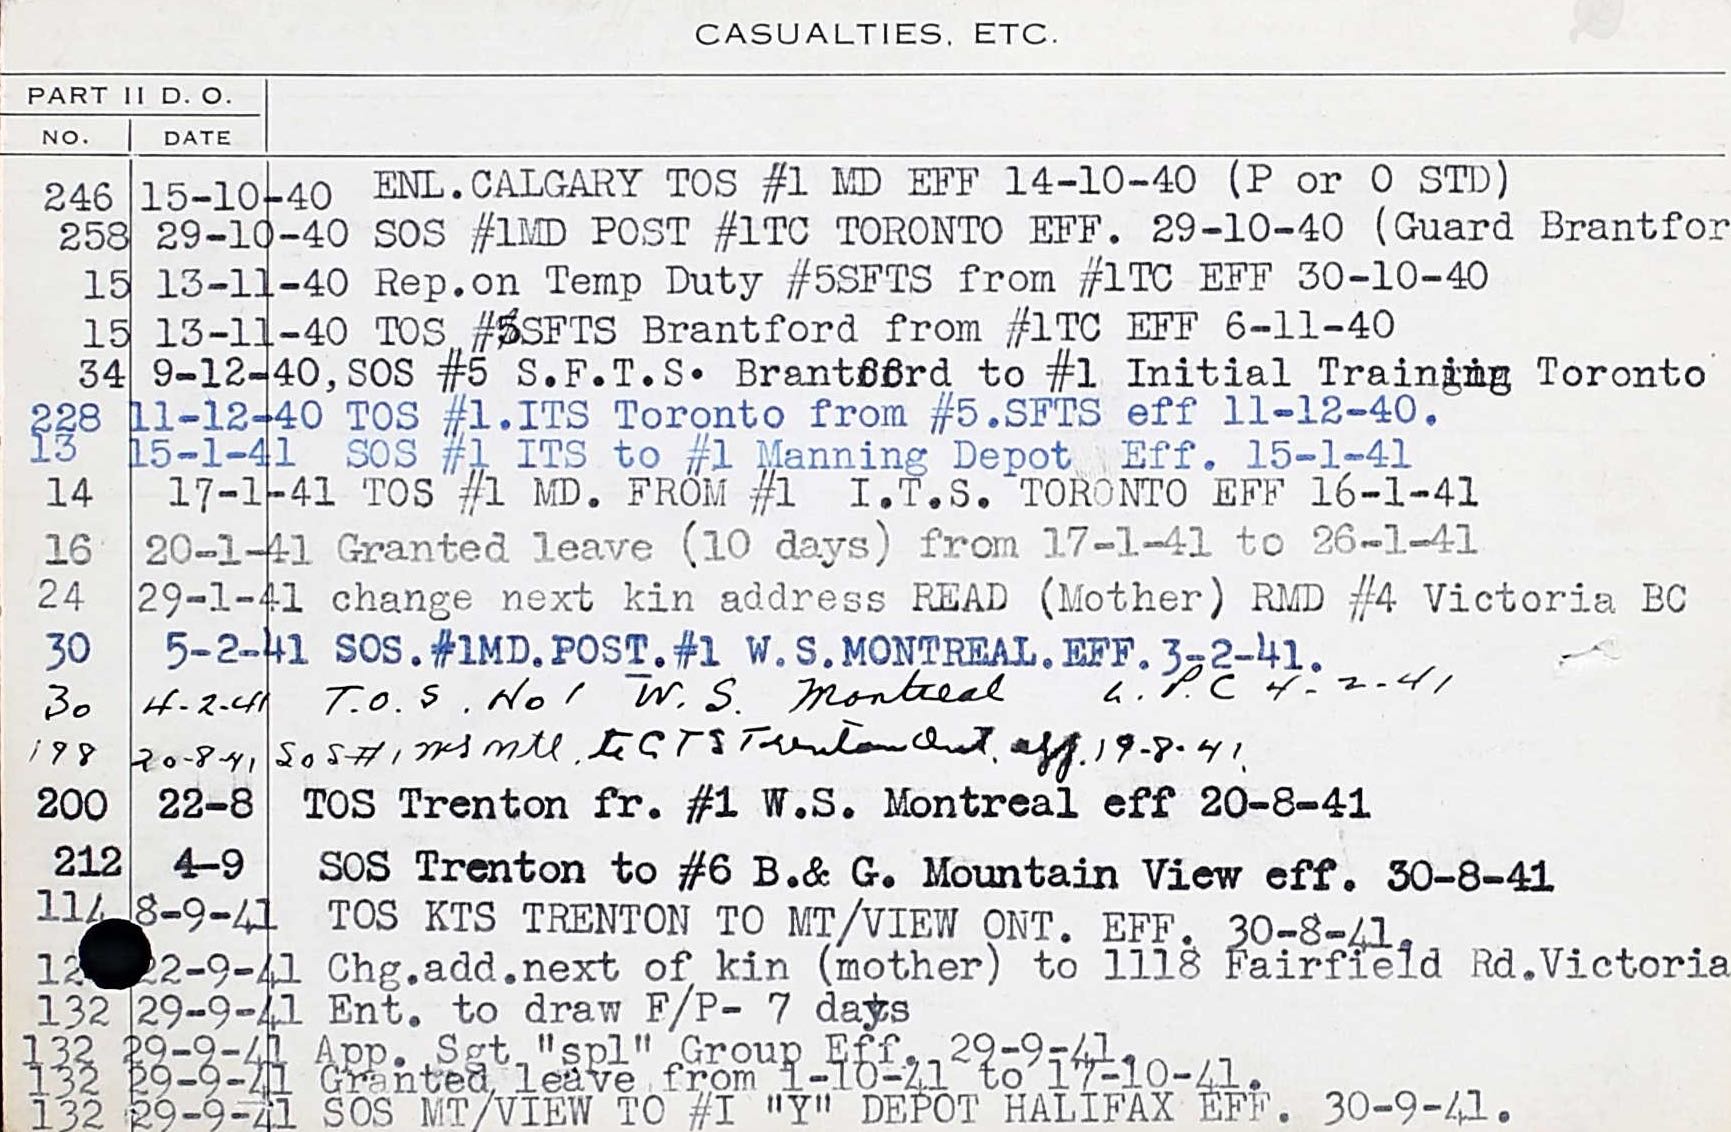 CASUALTIES, ETC.
PART II D. O.
NO. DATE
246 15-10-40 ENL.CALGARY TOS #1 MD EFF 14-10-40 (P or O STD)
258 29-10-40 SOS #1MD POST #1TC TORONTO EFF. 29-10-40 (Guard Brantfor
15 13-11-40 Rep.on Temp Duty #5SFTS from #1TC EFF 30-10-40
15 13-11-40 TOS #5SFTS Brantford from #1TC EFF 6-11-40
34 9-12-40, SOS #5 S.F.T.S. Brantford to #1 Initial Training Toronto
228 11-12-40 TOS #1.ITS Toronto from #5.SFTS eff 11-12-40.
13 15-1-41 SOS #1 ITS to #1 Manning Depot Eff. 15-1-41
14 17-1-41 TOS #1 MD. FROM #1 I.T.S. TORONTO EFF 16-1-41
16 20-1-41 Granted leave (10 days) from 17-1-41 to 26-1-41
24 29-1-41 change next kin address READ (Mother) RMD #4 Victoria BC
30 5-2-41 SOS.#1MD.POST.#1 W.S.MONTREAL.EFF.3-2-41.
30 4-2-41 T.O.S. No 1 W.S. Montreal 4-2-41
198 20-8-41 SOS #1 WS Mtl. to CTS Trenton Ont. eff. 19-8-41.
200 22-8 TOS Trenton fr. #1 W.S. Montreal eff 20-8-41
212 4-9 SOS Trenton to #6 B.& G. Mountain View eff. 30-8-41
114 8-9-41 TOS KTS TRENTON TO MT/VIEW ONT. EFF. 30-8-41.
12 22-9-41 Chg.add.next of kin (mother) to 1118 Fairfield Rd.Victoria
132 29-9-41 Ent. to draw F/P- 7 days
132 29-9-41 App. Sgt "spl" Group Eff. 29-9-41.
132 29-9-41 Granted leave from 1-10-41 to 17-10-41.
132 29-9-41 SOS MT/VIEW TO #I "Y" DEPOT HALIFAX EFF. 30-9-41.